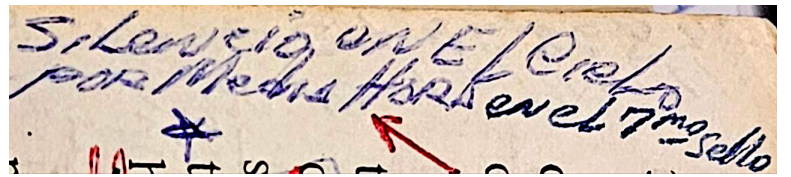 Silencio en El Cielo
por Media Hora en el 7mo sello